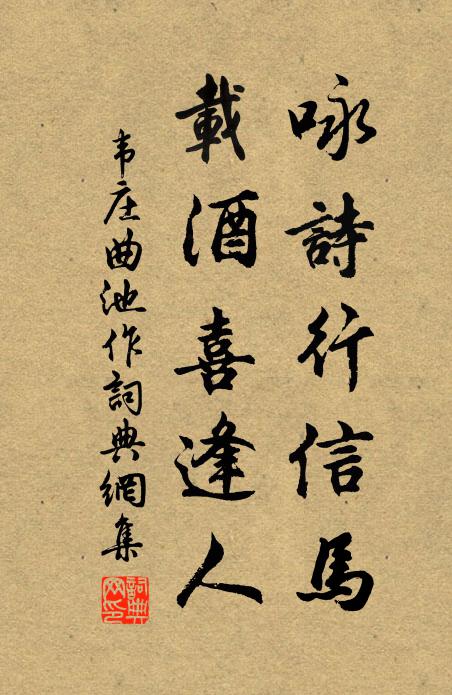 咏詩行信馬
載酒喜逢人
韦庄曲池作詞典網集
詞典
网印